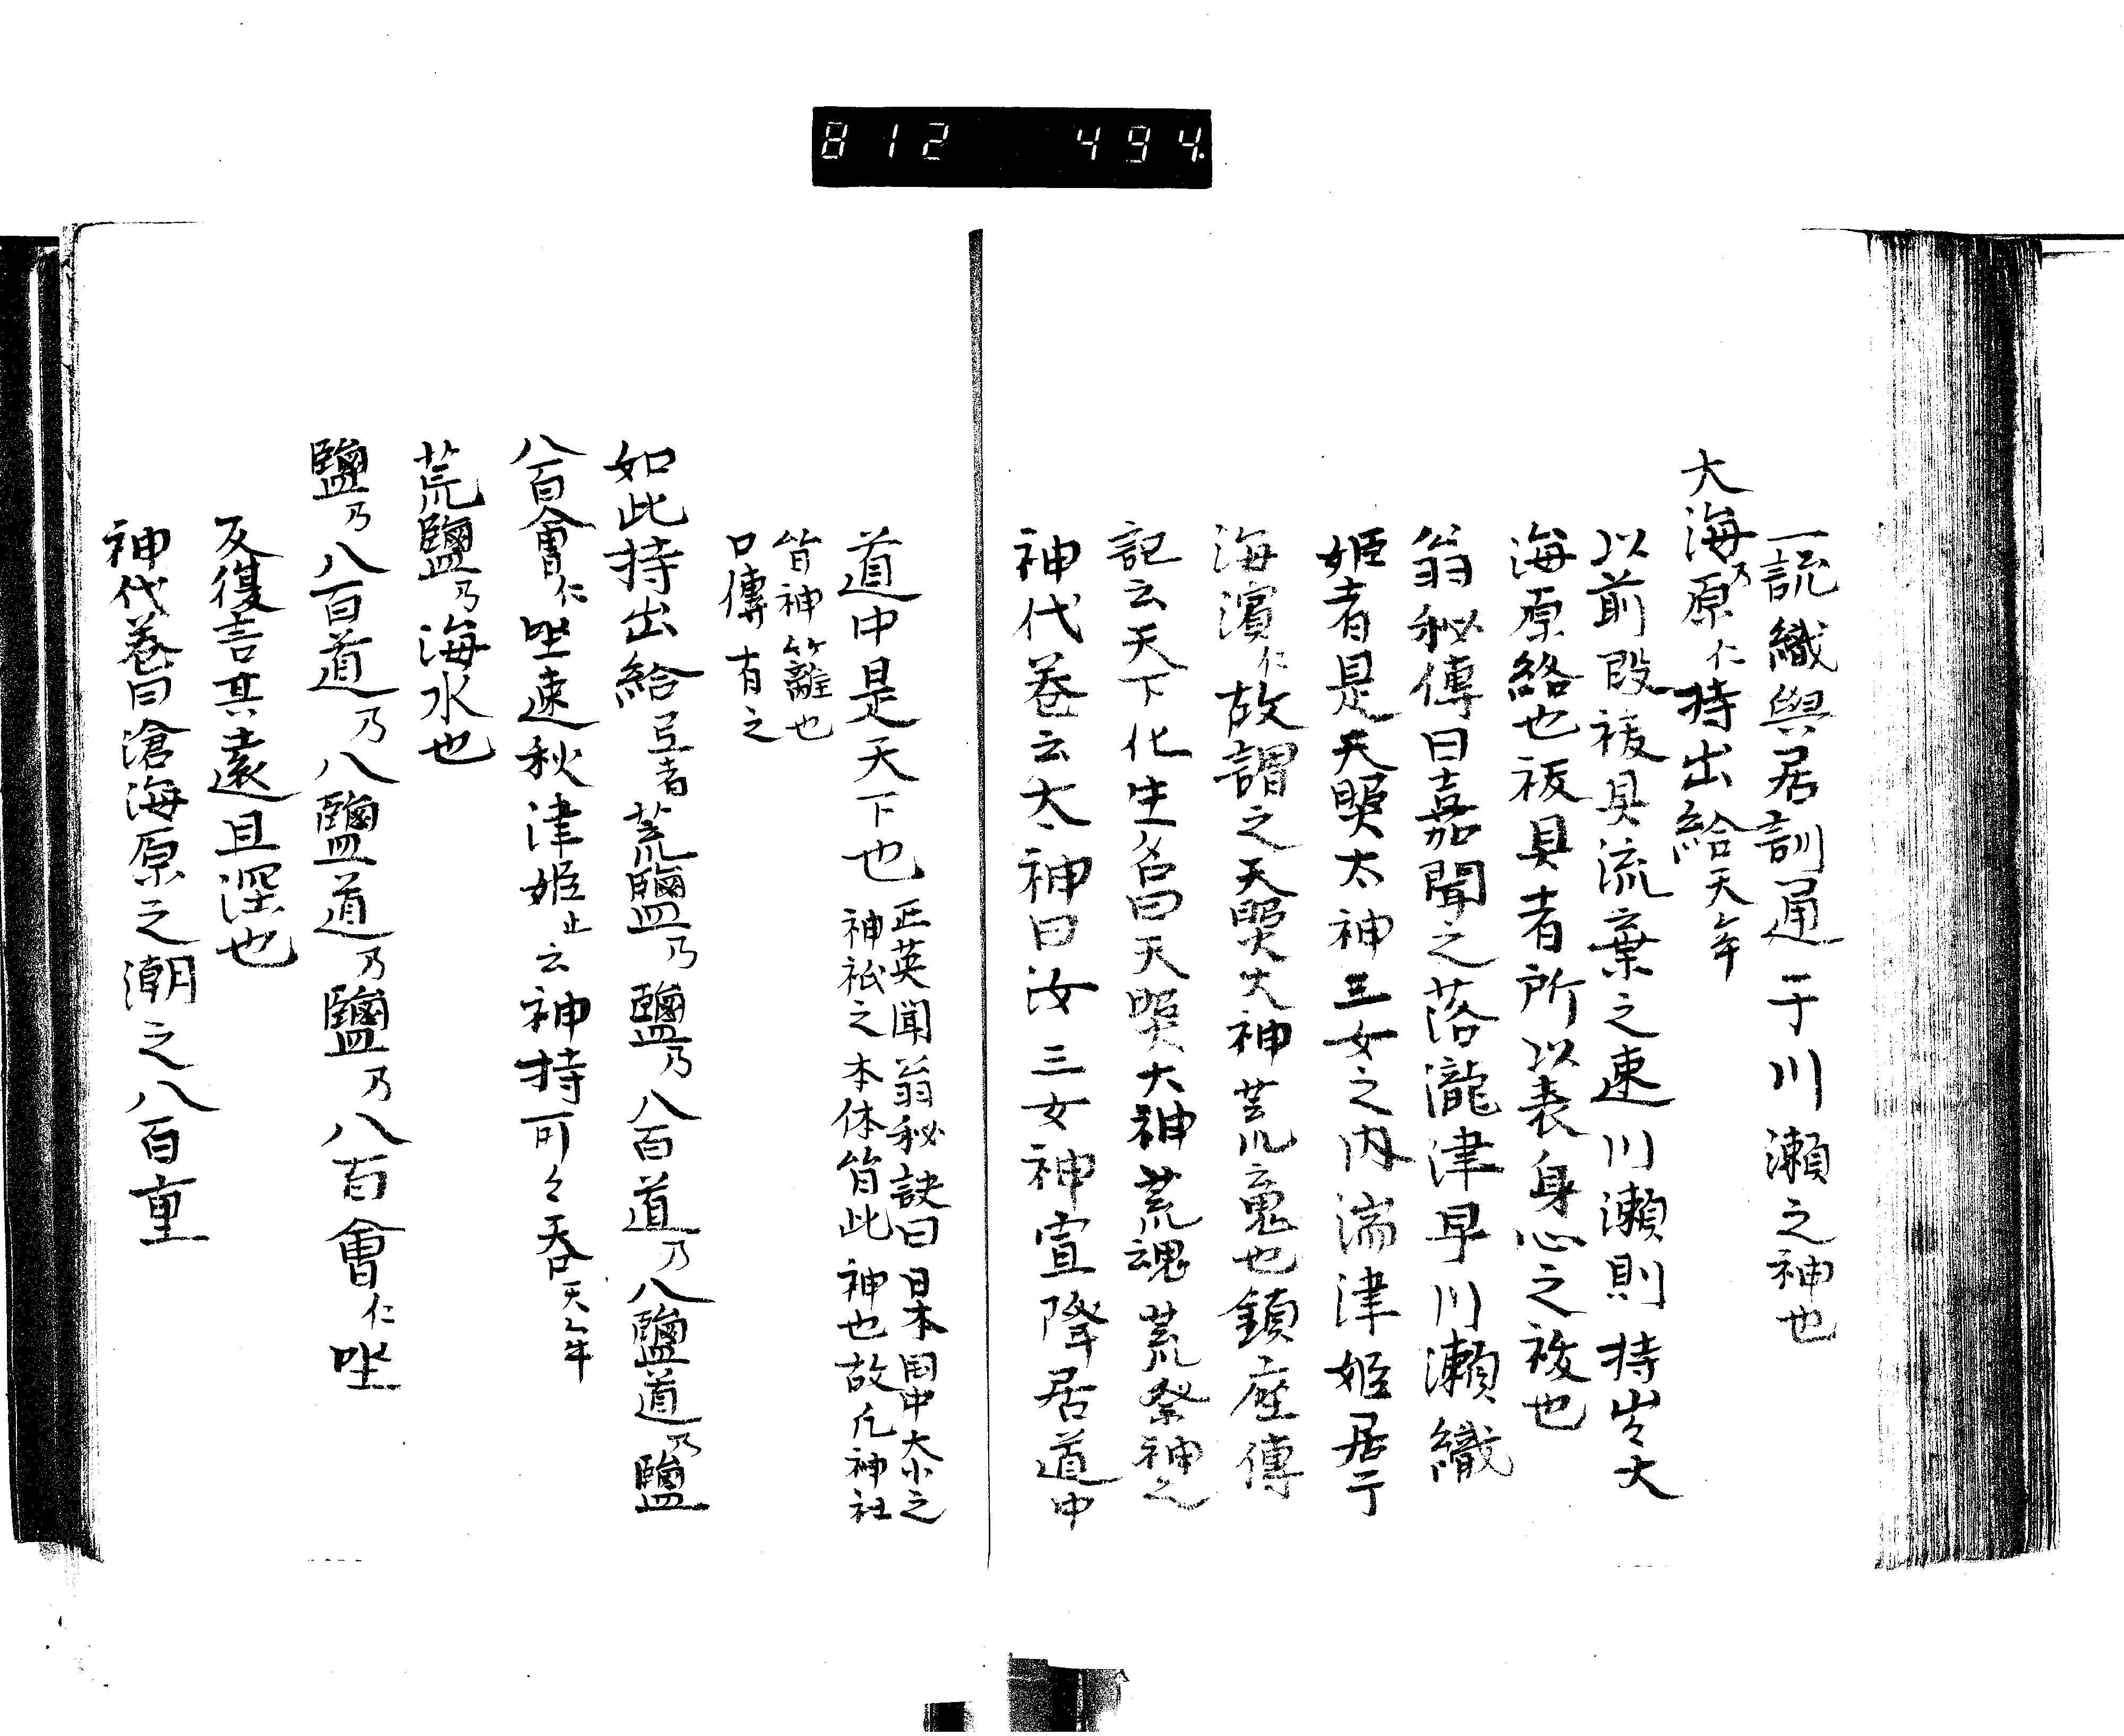 812 494.
一説織與居訓通于川瀬之神也
大海乃原仁持出給天牟
以前段祓具流棄之速川瀬則持出大
海原給也祓具者所以表身心之祓也
翁秘傳曰嘉聞之落瀧津早川瀬織
姫者是天照太神三女之内湍津姫居于
海濱仁故謂之天照大神荒魂也鎮座傳
記云天下化生名曰天照大神荒魂荒祭神也
神代巻云太神曰汝三女神宣降居道中
道中是天下也正英聞翁秘訣曰日本国中大小之
神祇之本体皆此神也故凡神社
皆神籬也
口傳有之
如此持出給弖者荒鹽乃鹽乃八百道乃八鹽道乃鹽
八百會仁坐速秋津姫止云神持可々呑天牟
荒鹽乃海水也
鹽乃八百道乃八鹽道乃鹽乃八百會仁坐
反復言其遠且深也
神代巻曰滄海原之潮之八百重